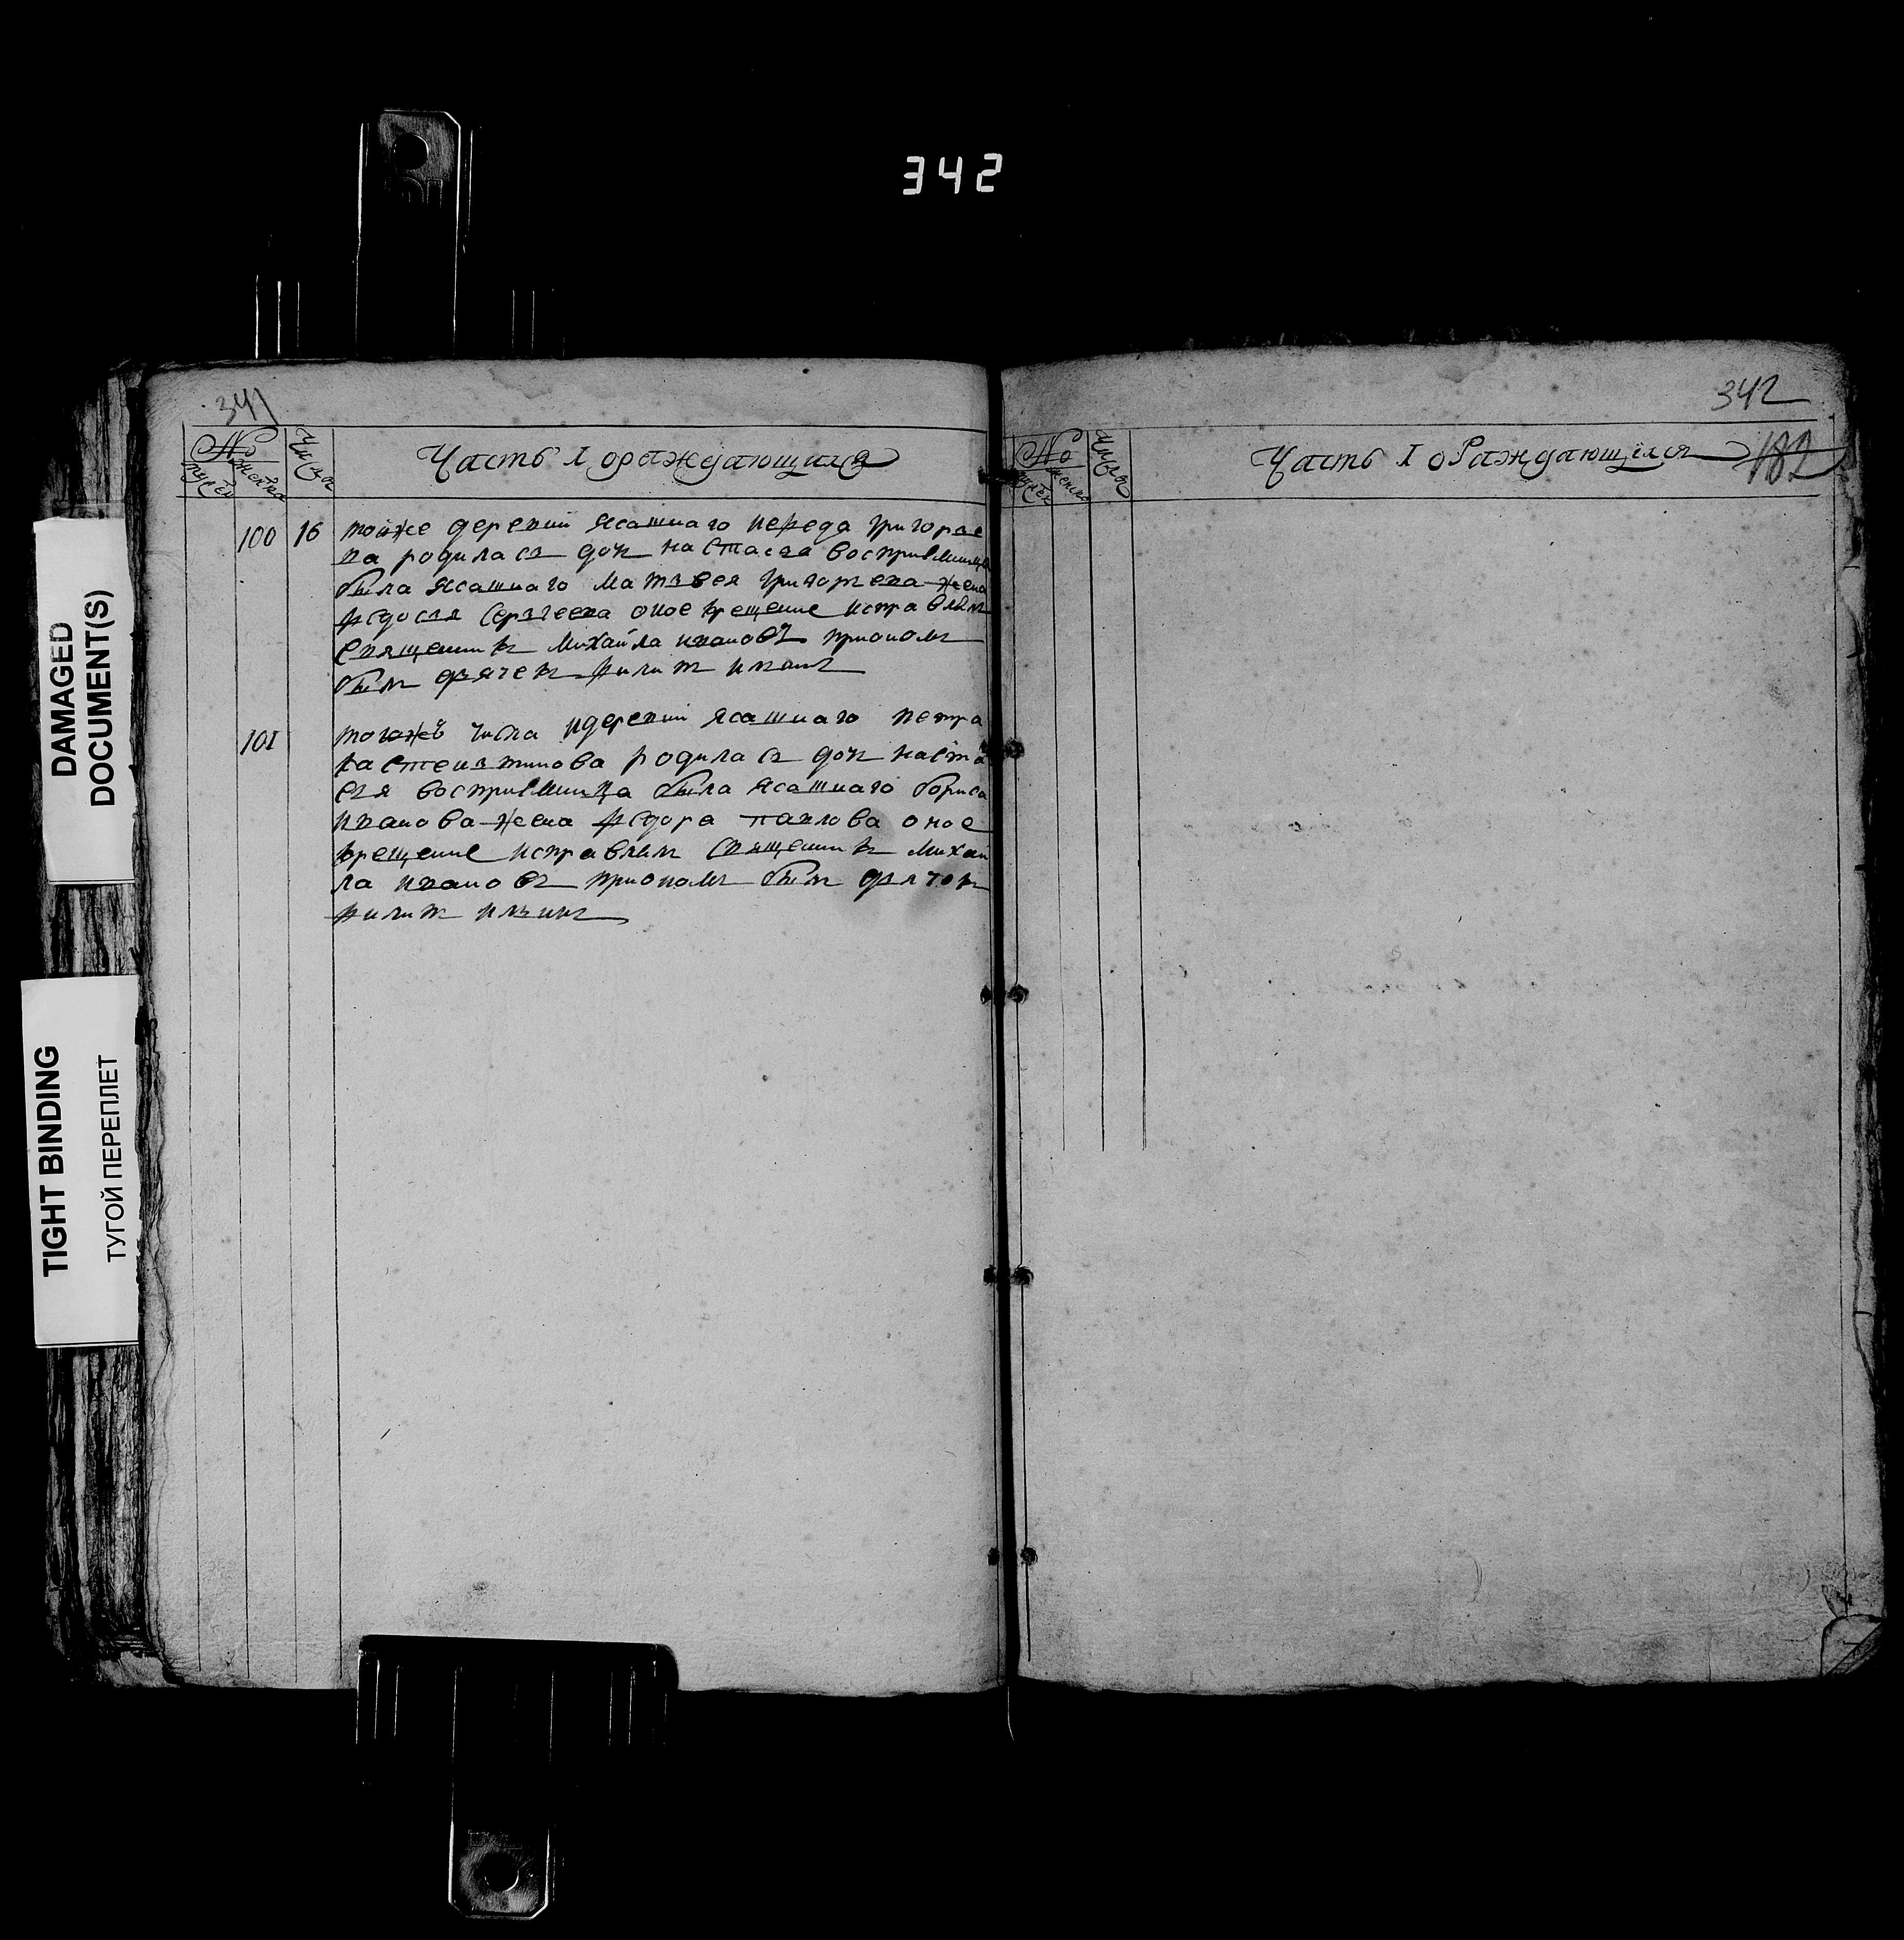 342
DAMAGED
DOCUMENT(S)
TIGHT BINDING
ТУГОЙ ПЕРЕПЛЕТ
341
№
Числы
Часть I ораждающихся
мужеск
женска
100 16 тойже деревни ясашнаго Григорье
ва родилась дочь настасея восприемница
была ясашнаго матвея григорьева жена
федосья сергеева оное крещение исправлял
священник михайла иванов прионом
был дьячек филип ильин
101 тогожъ числа идеревни ясашнаго петра
костентинова родилась дочь наста
сея восприемница была ясашнаго бориса
иванова жена федора павлова оное
крещение исправлял священник михай
ла иванов прионом был дьячок
филип ильин
342
182
№
Числы
Часть I оРаждающихся